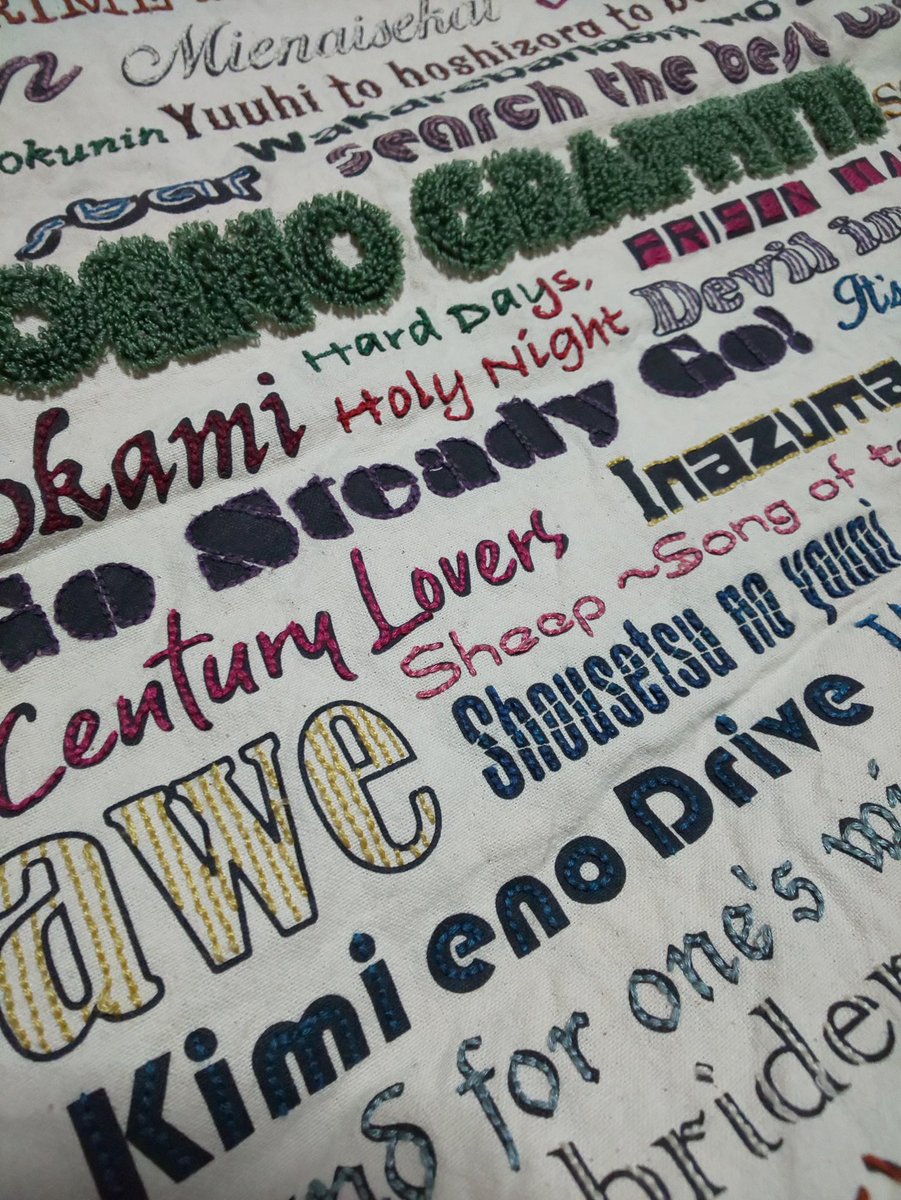 Mienaisekai
Yuuhi to hoshizora to
okunin
Wakarebanashi wo
Search the best
star
ORNO GRAFFITTI
PRISON MA
Hard Days,
Holy Night
Devil in
It's
okami
Go Steady Go!
Inazuma
Century Lovers
Sheep ~Song of
Shousetsu no youni
awe
Kimi eno Drive
nd for one's wi
briden